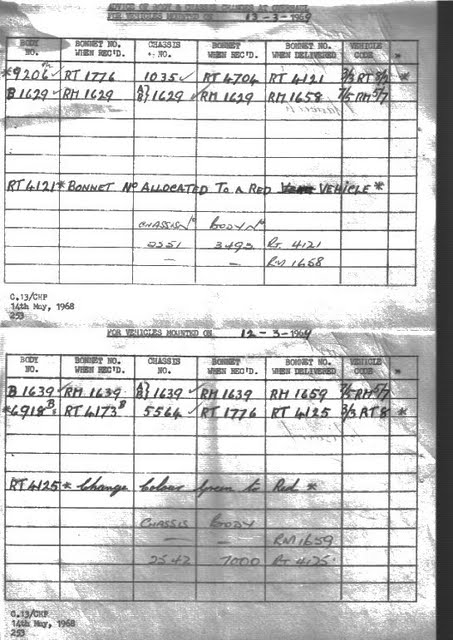 ADVICE OF BODY & CHASSIS CHANGES AT
FOR VEHICLES MOUNTED ON 12-3-1969
BODY NO. BONNET NO. WHEN REC'D. CHASSIS NO. BONNET WHEN REC'D. BONNET NO. WHEN DELIVERED VEHICLE CODE
*9206 ✓ RT 1776 1035 ✓ RT 4704 RT 4121 *
B 1629 ✓ RM 1629 A/B} 1629 ✓ RM 1629 RM 1658 7/5 RM 5/7
RT 4121 * BONNET Nº ALLOCATED TO A RED VEHICLE *
CHASSIS Nº BODY Nº
2251 3495 RT 4121
— — RM 1658
G.13/CHP
14th May, 1968
253
FOR VEHICLES MOUNTED ON 12-3-1969
BODY NO. BONNET NO. WHEN REC'D. CHASSIS NO. BONNET WHEN REC'D. BONNET NO. WHEN DELIVERED VEHICLE CODE
B 1639 ✓ RM 1639 A/B} 1639 ✓ RM 1639 RM 1659 7/5 RM 5/7
*6918 RT 4173 5564 ✓ RT 1776 RT 4125 3/3 RT 8 *
RT 4125 * Change Colour Green to Red *
CHASSIS BODY
— — RM 1659
2542 7000 RT 4125
G.13/CHP
14th May, 1968
253